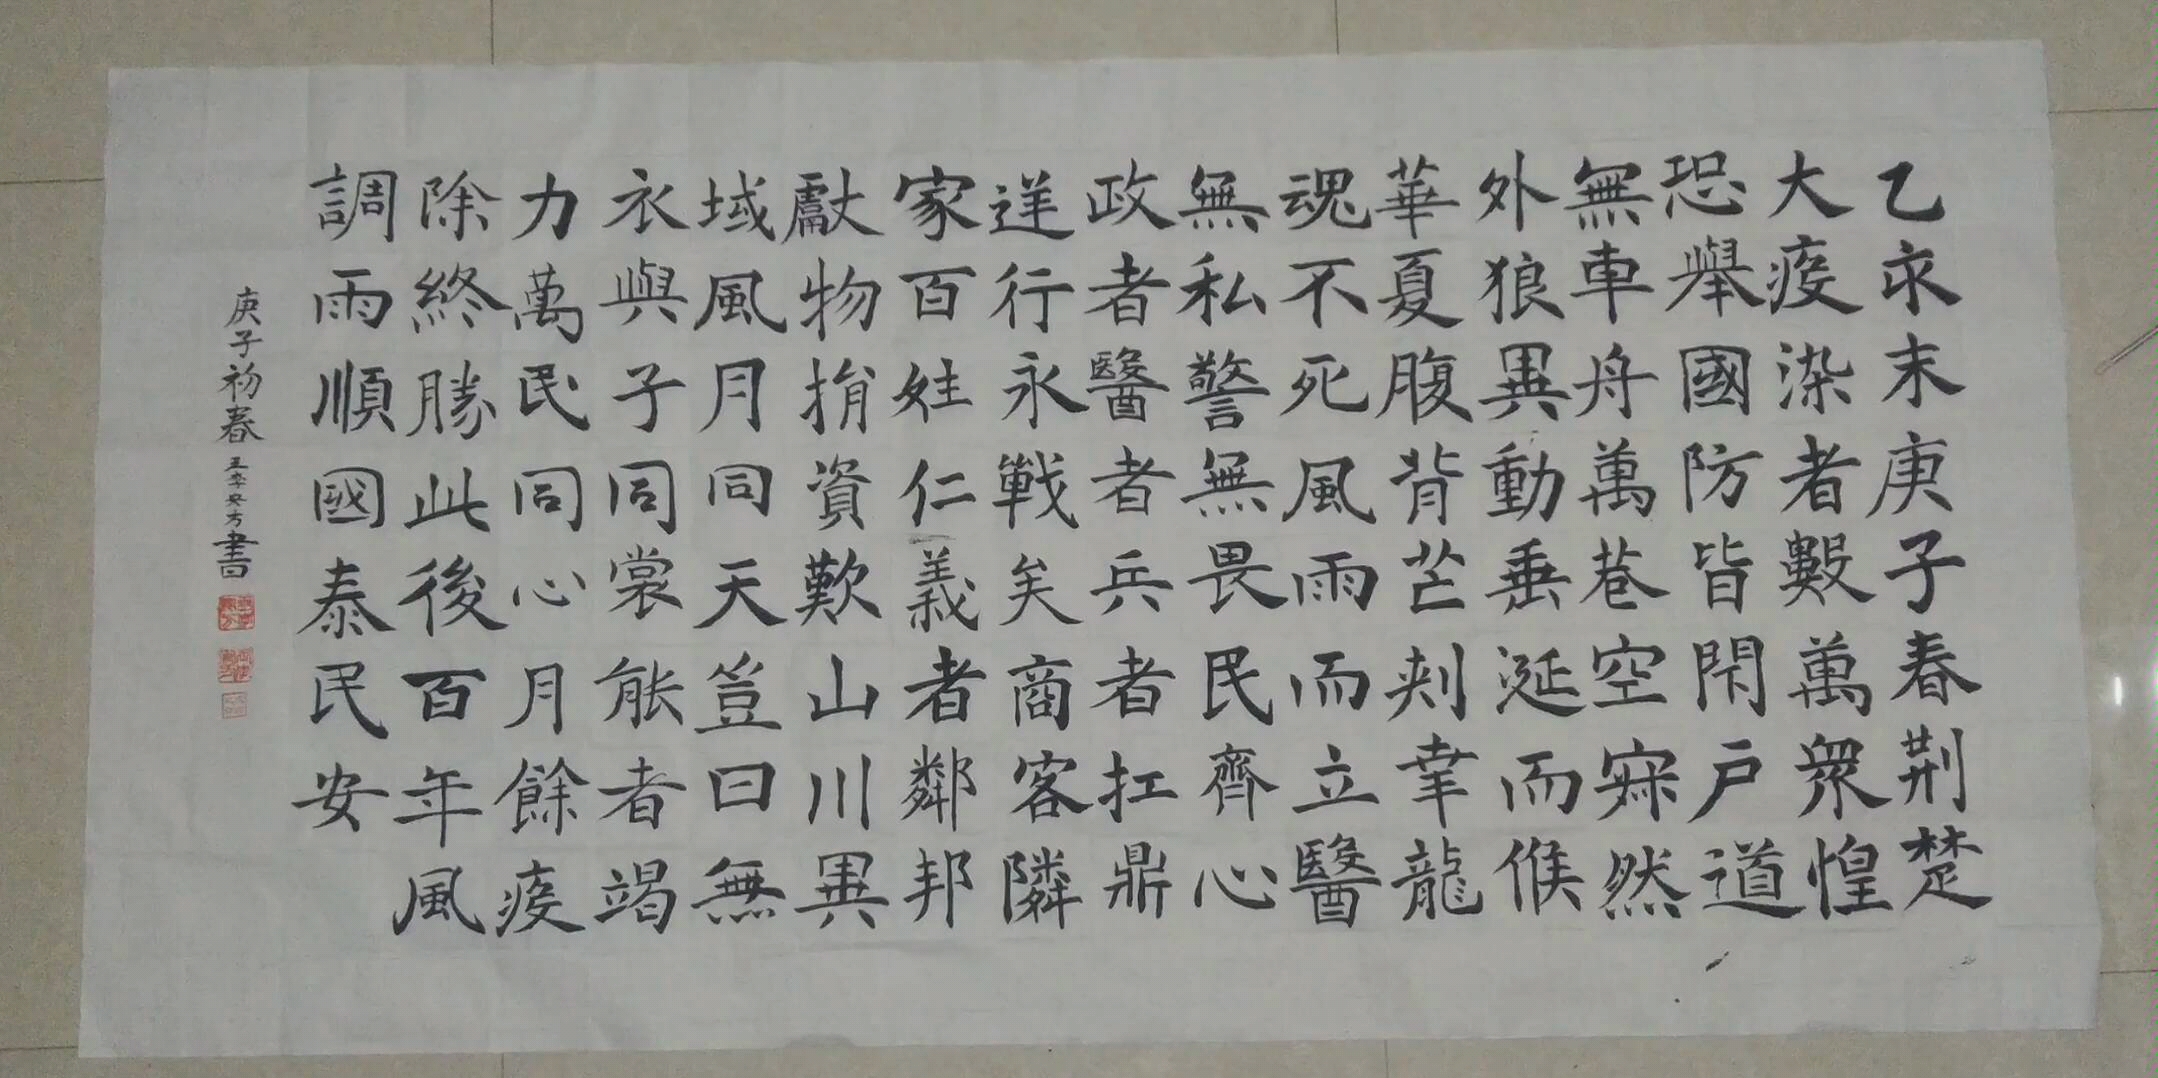 乙亥末庚子春荆楚
大疫染者數萬眾惶
恐舉國防皆閉户道
無車舟萬巷空寂然
外狼異動垂涎而候
華夏腹背芒刺幸龍
魂不死風雨而立醫
無私警無畏民齊心
政者醫者兵者扛鼎
逆行永戰矣商客隣
家百姓仁義者鄰邦
獻物捐資歎山川異
域風月同天豈曰無
衣與子同裳能者竭
力萬民同心月餘疫
除終勝此後百年風
調雨順國泰民安
庚子初春 書